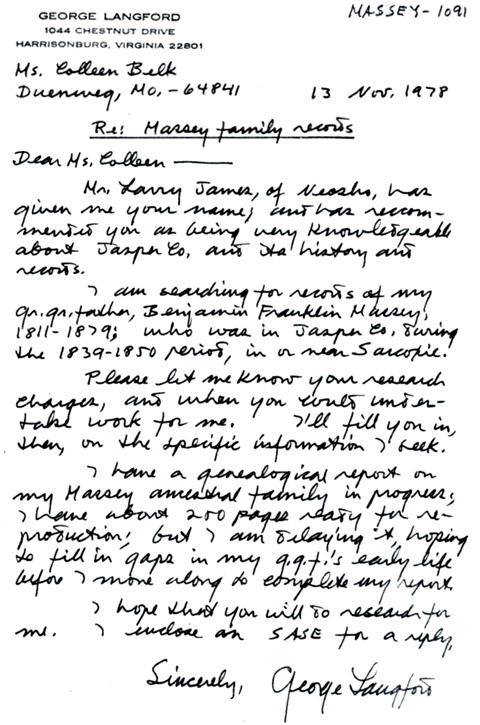 MASSEY-1091
GEORGE LANGFORD
1044 CHESTNUT DRIVE
HARRISONBURG, VIRGINIA 22801
Ms. Colleen Belk
Duenweg, Mo, - 64841
13 Nov. 1978
Re: Massey family records
Dear Ms. Colleen —
Mr. Larry James, of Neosho, has
given me your name; and has recom-
mended you as being very knowledgeable
about Jasper Co, and its history and
records.
I am searching for records of my
gr.gr.father, Benjamin Franklin Massey,
1811-1879; who was in Jasper Co, during
the 1839-1850 period, in or near Sarcoxie.
Please let me know your research
charges, and when you could under-
take work for me. I'll fill you in,
then, on the specific information I seek.
I have a genealogical report on
my Massey ancestral family in progress;
I have about 200 pages ready for re-
production; but I am delaying it, hoping
to fill in gaps in my g.g.f.'s early life
before I move along to complete my report.
I hope that you will do research for
me. I enclose an SASE for a reply.
Sincerely, George Langford